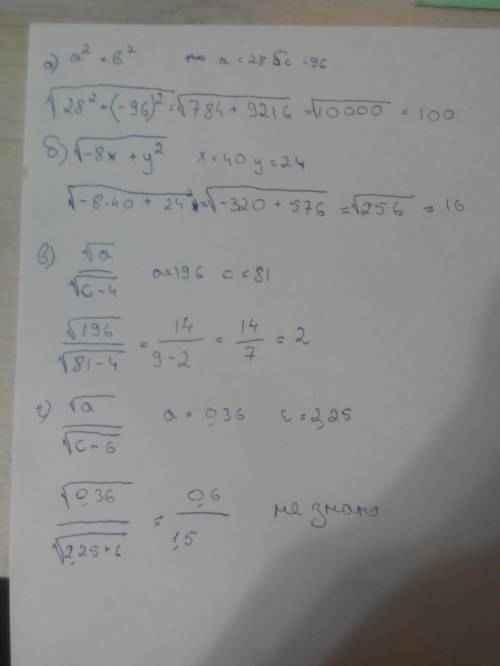 а) a² + b² a = 28 = -96
√28² + (-96)² = √784 + 9216 = √10000 = 100
б) √-8x + y² x = 40 y = 24
√-8·40 + 24² = √-320 + 576 = √256 = 16
в) √a / √c-4 a = 196 c = 81
√196 / √81-4 = 14 / 9-2 = 14 / 7 = 2
г) √a / √c-6 a = 0,36 c = 2,25
√0,36 / √2,25+6 = 0,6 / 1,5 не знаю